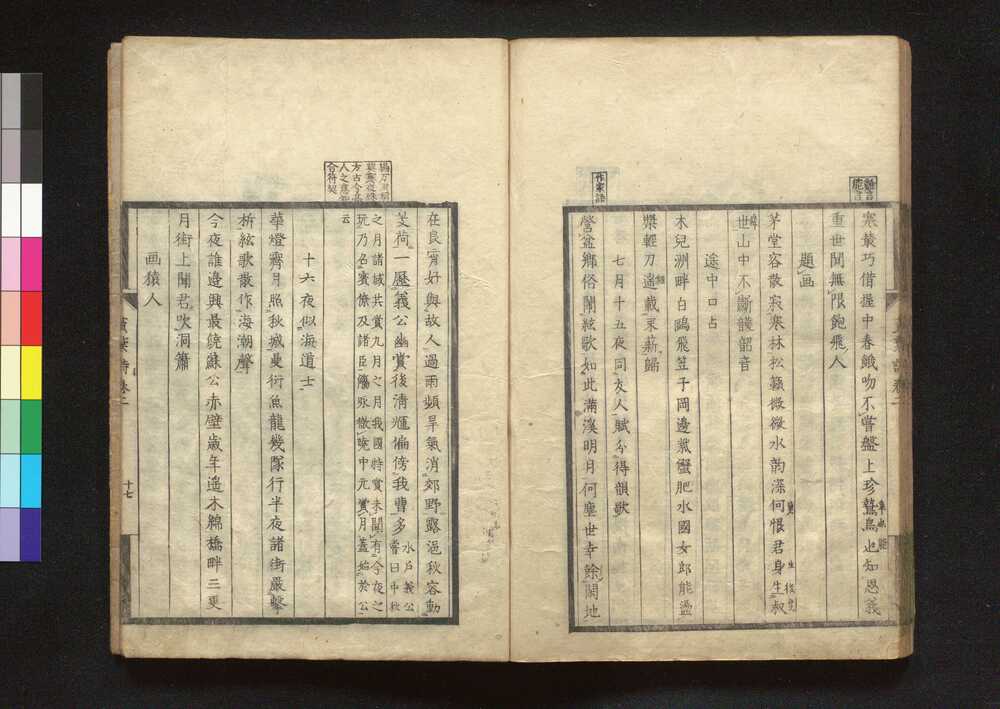 寒叢巧借握中春餓吻不嘗盤上珍鷙鳥也知恩義
重世聞無限飽飛人
題画
茅堂容散寂寒林松籟微微水韵深何恨君身生叔
世山中不断頀韶音
途中口占
木児洲畔白鷗飛笠子岡邊紫蟹肥水國女郎能盪
槳輕刀遙載束薪歸
七月十五夜同友人賦分得韻歌
作家語
營盆鄉俗鬧絃歌如此滿溪明月何塵世幸餘閑地
在良宵好與故人過雨頻旱氣消郊野露浥秋容動
芰荷一歷義公幽賞後淸輝偏傍我曹多
水戶義公嘗曰中秋
之月諸域共賞九月之月我國特賞未聞有今夜之
玩乃名賓僚及諸臣觴咏徹曉中元賞月蓋始於公
云
十六夜似海道士
華燈齊月照秋城曼衍魚龍幾隊行半夜諸街嚴擊
柝絃歌散作海潮聲
今夜誰邊興最饒蘇公赤壁歲年遙木綿橋畔三更
月街上聞君吹洞簫
画猿人
十七